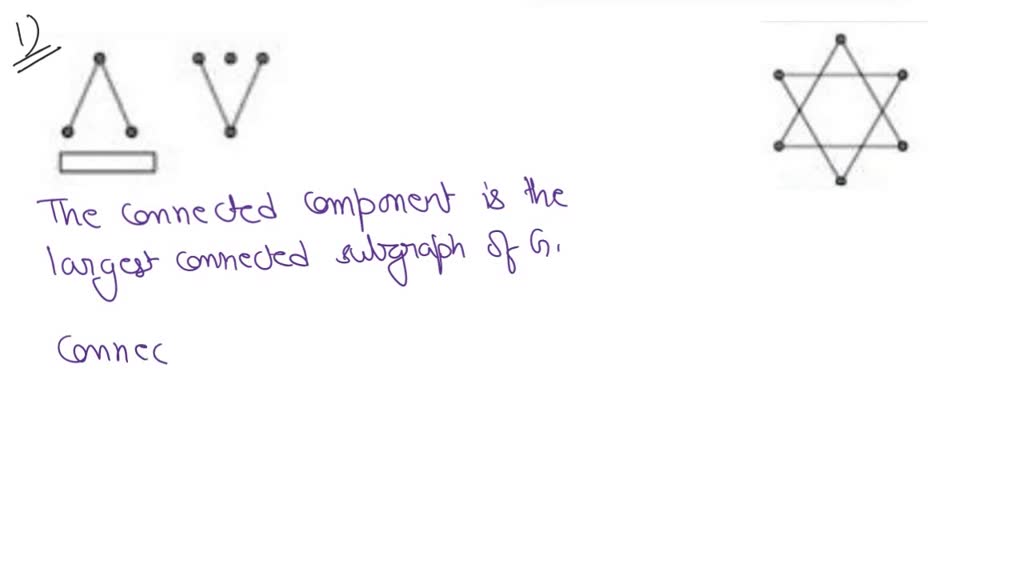 1)
The connected component is the
largest connected subgraph of G.
Connec